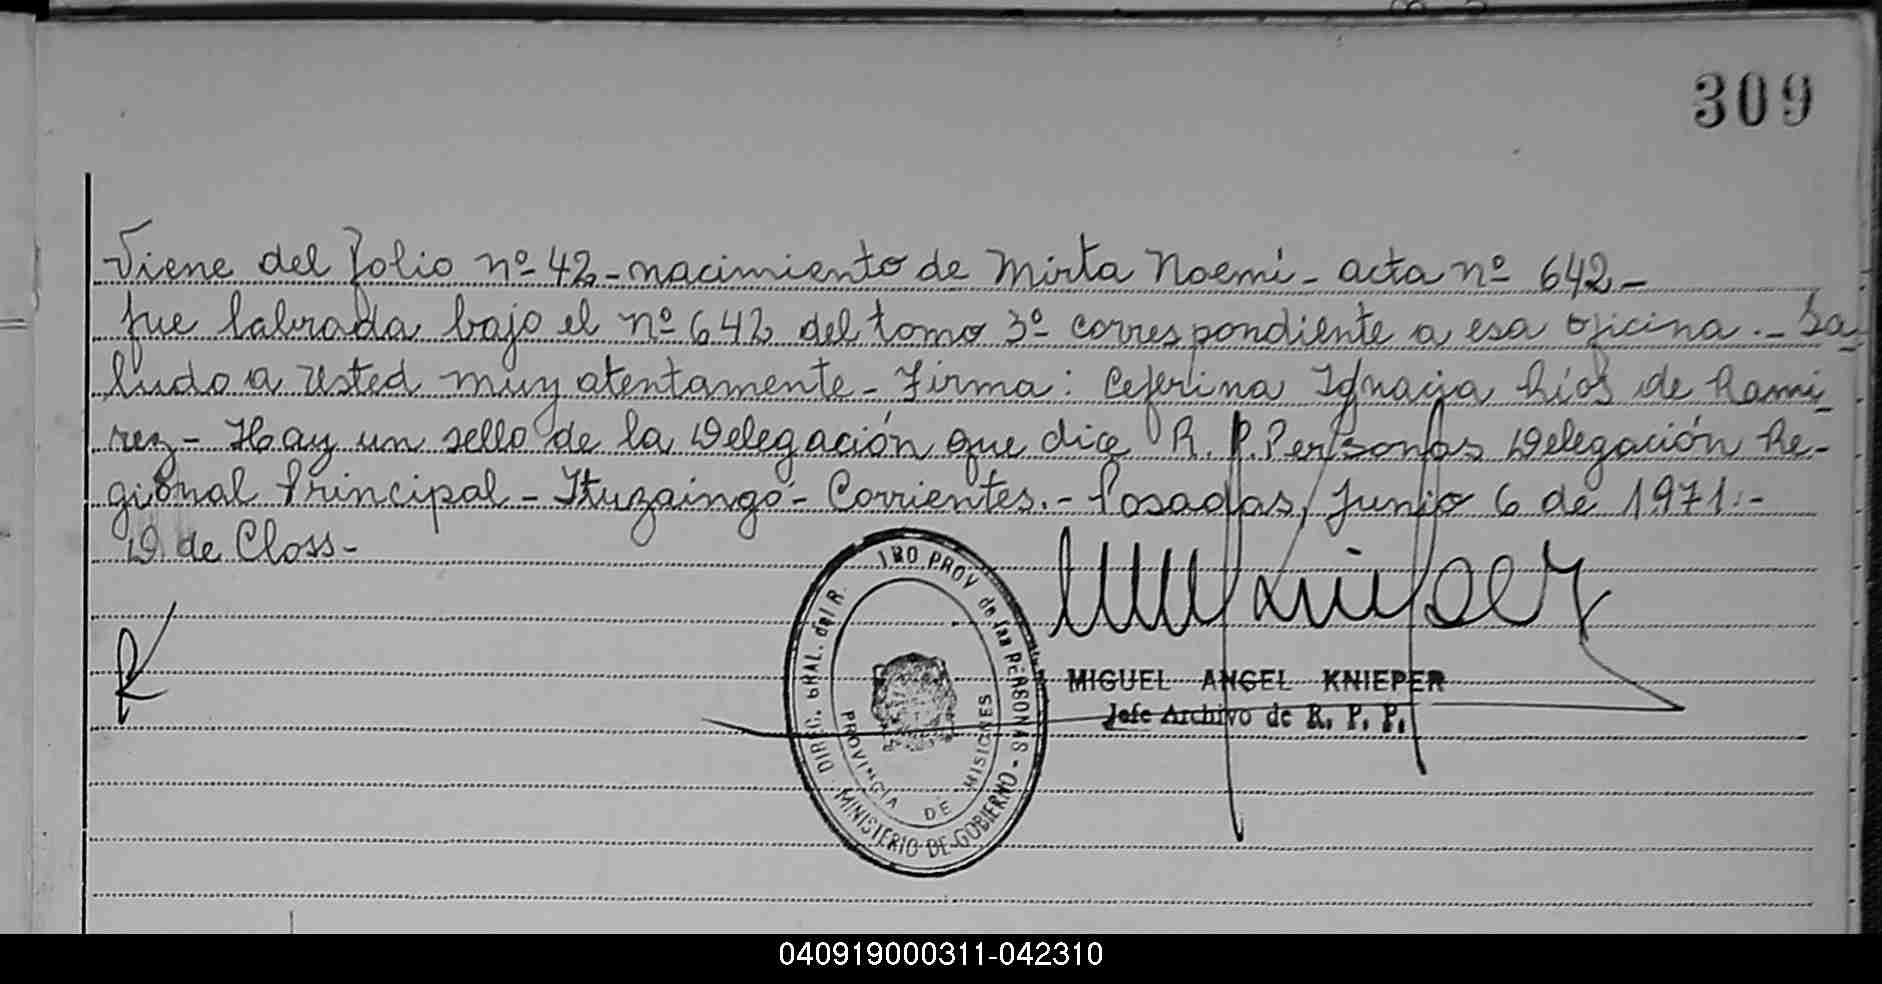 309
Viene del folio nº 42 - nacimiento de Mirta Noemi - acta nº 642 -
fue labrada bajo el nº 642 del tomo 3º correspondiente a esa oficina. - Sa
ludo a Usted muy atentamente - Firma: Ceferina Ignacia Ríos de Rami
rez - Hay un sello de la Delegación que dice R. P. Personas Delegación Re-
gional Principal - Ituzaingó - Corrientes. - Posadas, Junio 6 de 1971. -
D. de Closs -
DIREC. GRAL. del R. PROV de las PERSONAS - MINISTERIO DE GOBIERNO
PROVINCIA DE MISIONES
MIGUEL ANGEL KNIEPER
Jefe Archivo de R. P. P.
040919000311-042310